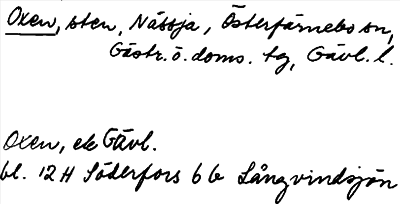 Oxen, sten, Nässja, Österfärnebo sn,
Gästr. ö. doms. tg, Gävl. l.
Oxen, ek Gävl.
bl. 12 H Söderfors 6 b Långvindsjön